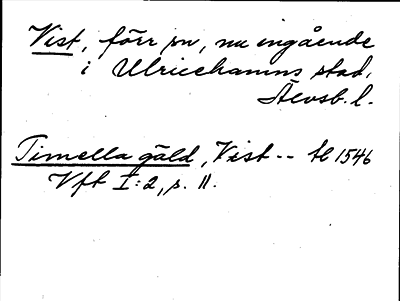 Vist, förr sn, nu ingående
i Ulricehamns stad,
Älvsb. l.
Timella gäld, Vist -- tl 1546
Vft I:2, s. 11.